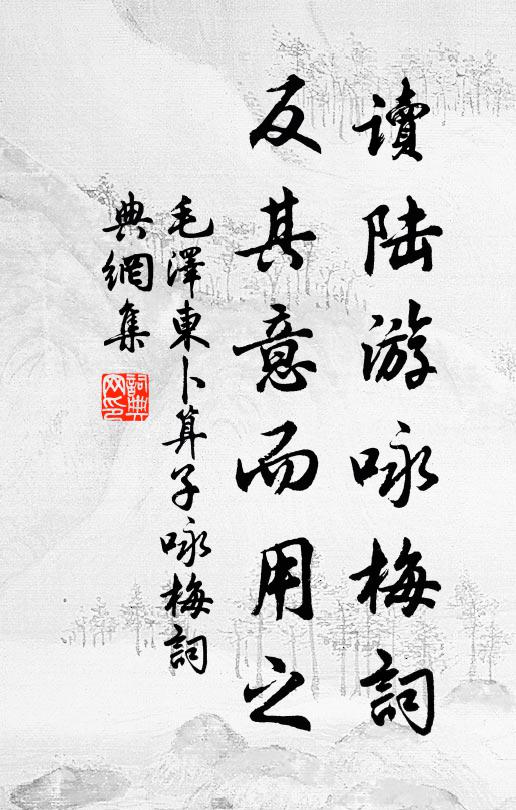 讀陆游咏梅詞
反其意而用之
毛澤東卜算子咏梅詞
典網集
詞典
网印